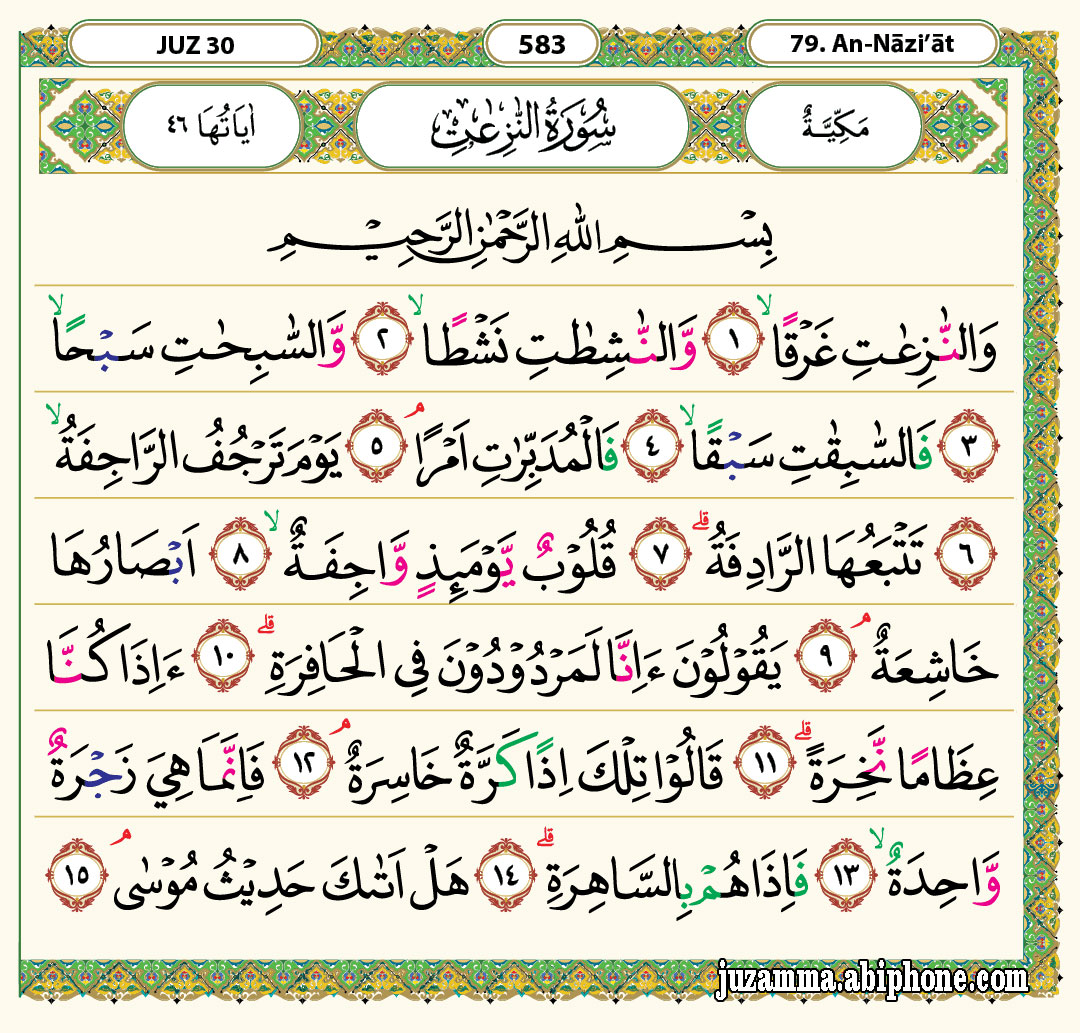 JUZ 30 583 79. An-Nāzi’āt
مَكِّيَّةٌ سُوْرَةُ النّٰزِعٰتِ اٰيَاتُهَا ٤٦
بِسْمِ اللّٰهِ الرَّحْمٰنِ الرَّحِيْمِ
وَالنّٰزِعٰتِ غَرْقًاۙ ١ وَّالنّٰشِطٰتِ نَشْطًاۙ ٢ وَّالسّٰبِحٰتِ سَبْحًاۙ
٣ فَالسّٰبِقٰتِ سَبْقًاۙ ٤ فَالْمُدَبِّرٰتِ اَمْرًاۘ ٥ يَوْمَ تَرْجُفُ الرَّاجِفَةُۙ
٦ تَتْبَعُهَا الرَّادِفَةُۗ ٧ قُلُوْبٌ يَّوْمَئِذٍ وَّاجِفَةٌۙ ٨ اَبْصَارُهَا
خَاشِعَةٌۘ ٩ يَقُوْلُوْنَ ءَاِنَّا لَمَرْدُوْدُوْنَ فِى الْحَافِرَةِۗ ١٠ ءَاِذَا كُنَّا
عِظَامًا نَّخِرَةًۗ ١١ قَالُوْا تِلْكَ اِذًا كَرَّةٌ خَاسِرَةٌۘ ١٢ فَاِنَّمَا هِيَ زَجْرَةٌ
وَّاحِدَةٌۙ ١٣ فَاِذَا هُمْ بِالسَّاهِرَةِۗ ١٤ هَلْ اَتٰىكَ حَدِيْثُ مُوْسٰىۘ ١٥
juzamma.abiphone.com